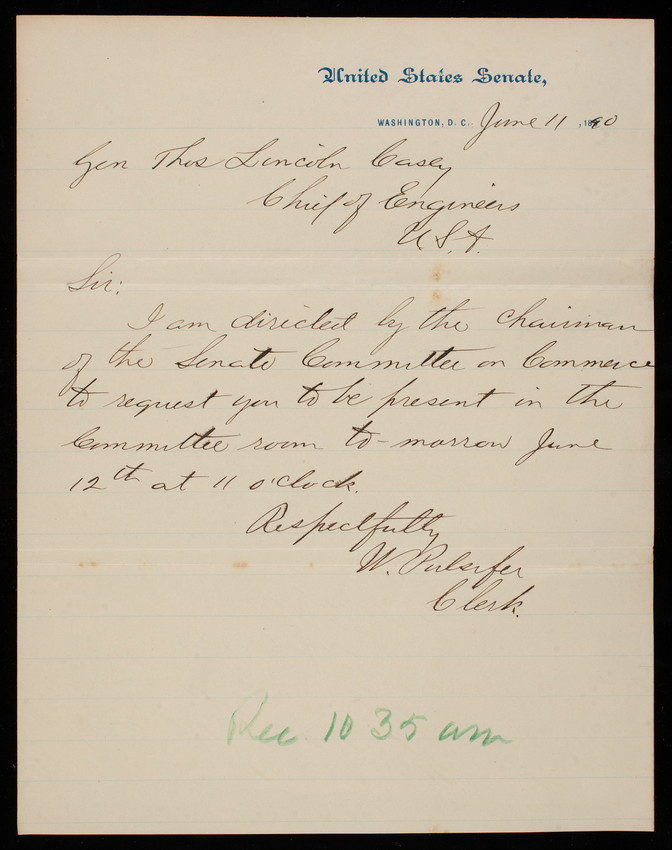 United States Senate,
WASHINGTON, D. C. June 11, 1890
Gen Thos Lincoln Casey
Chief of Engineers
U.S.A.
Sir:
I am directed by the Chairman
of the Senate Committee on Commerce
to request you to be present in the
Committee room to-morrow June
12th at 11 o'clock.
Respectfully
W. Pulsifer
Clerk.
Rec 10 35 am